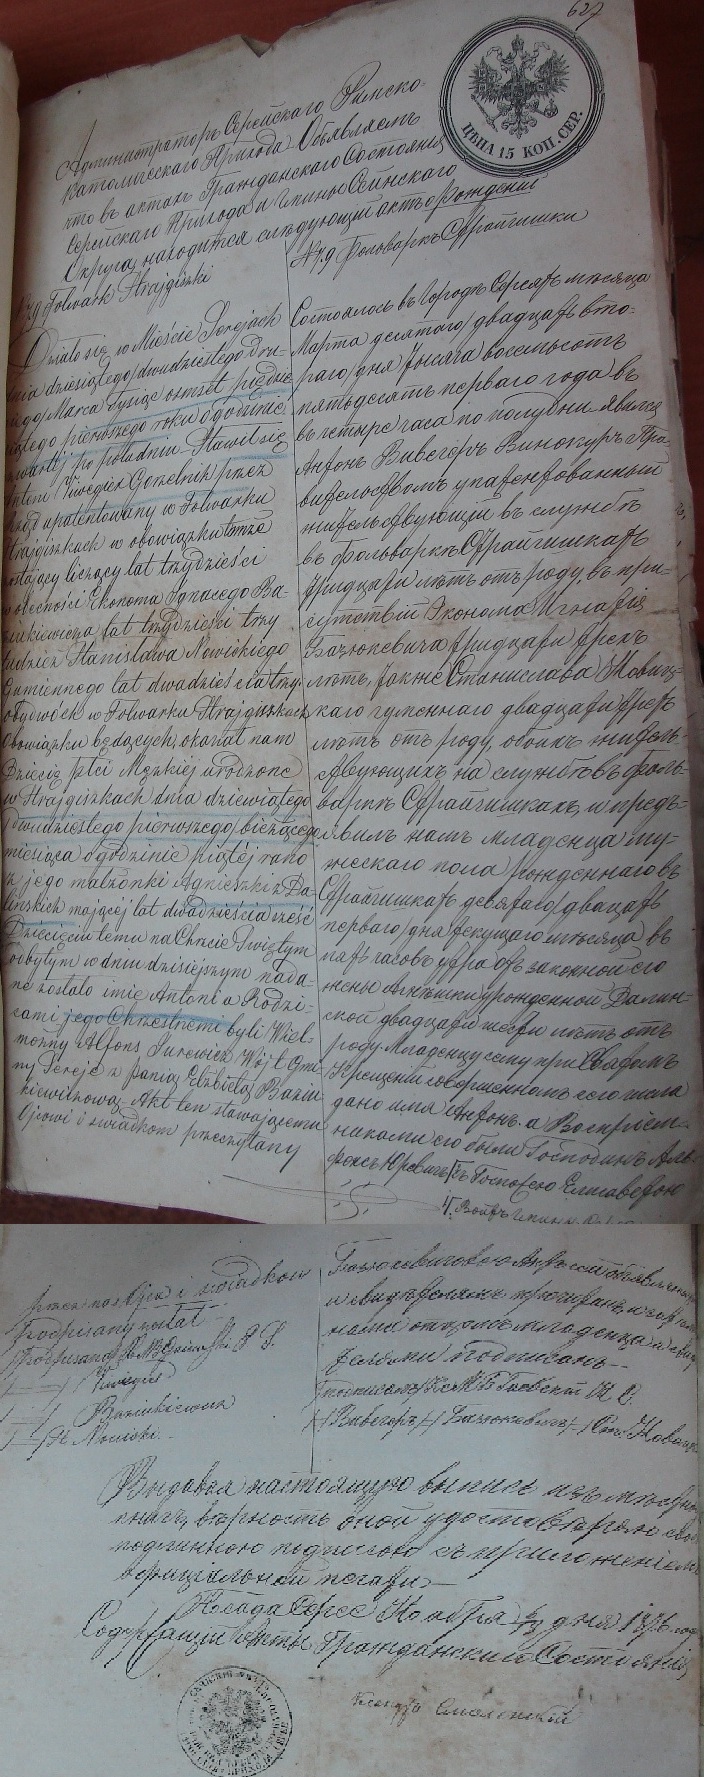 627
ЦѢНА 15 КОП. СЕР.
Администраторъ Серейскаго Римско-
Католическаго Прихода Объявляетъ
что въ актахъ Гражданскаго Состоянія
Серейскаго Прихода и Гмины Сейнскаго
Округа, находится слѣдующій актъ о рожденіи
Folwark Strajgiszki
Działo się w Mieście Serejach
dnia dziesiątego/dwudziestego dru-
giego/Marca tysiąc ośmset pięćdzie
siątego pierwszego roku o godzinie
czwartej po południu. Stawił się
Antoni Viweger Gorzelnik przez
Rząd apatentowany w Folwarku
Strajgiszkach w obowiązku tamże
zostający liczący lat trzydzieści
w obecności Ekonoma Ignacego Ba-
ziukiewicza lat trzydzieści trzy
tudzież Stanisława Nowickiego
Gumiennego lat dwadzieścia trzy
obydwóch w Folwarku Strajgiszkach
obowiązku będących, okazał nam
Dziecię płci Męzkiej urodzone
w Strajgiszkach dnia dziewiątego
/dwudziestego pierwszego/ bieżącego
miesiąca o godzinie piątej rano
z jego małżonki Agnieszki z Da-
lińskich mającej lat dwadzieścia sześć
Dziecięciu temu na Chrzcie Swiętym
odbytym w dniu dzisiejszym nada-
ne zostało imie Antoni a Rodzi-
cami jego Chrzestnemi byli Wiel-
możny Alfons Jurewicz Wójt Gmi-
ny Sereje z panią Elżbietą Baziu
kiewiczową. Akt ten stawającemu
Ojcowi i świadkom przeczytany
Фольваркъ Страйгишки
Состоялось въ Городѣ Сереяхъ мѣсяца
Марта десятаго/двадцать вто-
раго/дня тысяча восемьсотъ
пятьдесятъ перваго года въ
въ четыре часа по полудни явился
Антонъ Вивегеръ Винокуръ Пра-
вительствомъ упатентованный
жительствующій въ службѣ
въ фольваркѣ Страйгишкахъ
тридцати лѣтъ отъ роду, въ при-
сутствіи Эконома Игнатія
Базюкевича тридцати трехъ
лѣтъ, также Станислава Новиц-
каго гуменнаго двадцати трехъ
лѣтъ отъ роду, обоихъ житель-
ствующихъ на службѣ въ фоль-
варкѣ Страйгишкахъ, и предъ-
явилъ намъ младенца му-
жескаго пола рожденнаго въ
Страйгишкахъ девятаго/двадцать
перваго/дня текущаго мѣсяца въ
пять часовъ утра отъ законной его
жены Агнѣшки урожденной Далин-
ской двадцати шести лѣтъ отъ
роду. Младенцу сему при Святомъ
Крещеніи совершенномъ сего числа
дано имя Антонъ. а Воспріем-
никами его были Господинъ Аль-
фонсъ Юревичъ съ Госпожею Елисаветою
przez nas Ojca i świadkow
Podpisany został
Viweger
Baziukiewicz
St. Nowicki
Базюкевичовою. Актъ сей объявляющему
и свидѣтелямъ прочитанъ, и
нами отцемъ младенца и сви
дѣтелями подписанъ
Вивегеръ Базюкевичъ Ст. Новицк
Выдавая настоящую выпись изъ
книгъ, вѣрность оной удостовѣряю
подлинною подписью съ приложеніемъ
оффиціальной печати
Посадъ Серее Ноября дня 1876 года
Содержащій Акты Гражданскаго Состоянія
Ксендзъ Смоленскій